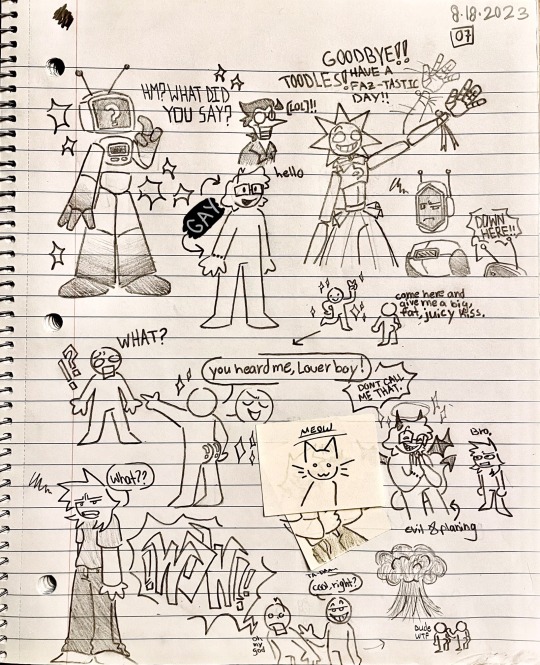 8.18.2023
07
GOODBYE!!
TOODLES! HAVE A
FAZ-TASTIC
DAY!!
HM? WHAT DID
YOU SAY?
?
[LOL]!!
hello
GAY
DOWN
HERE!!
come here and
give me a big,
fat, juicy kiss.
WHAT?
!?
you heard me, Lover boy!
DON'T CALL
ME THAT.
MEOW
Bro.
evil & planing
What??
¡WOW!
TA-DAAA~
cool, right?
oh
my
god
Dude
WTF